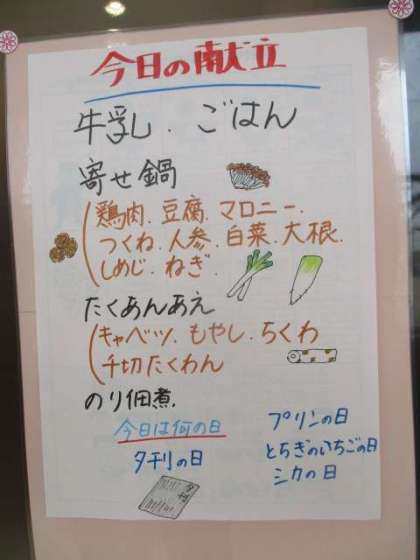 今日の献立
牛乳．ごはん
寄せ鍋
鶏肉．豆腐．マロニー．
つくね．人参．白菜．大根．
しめじ．ねぎ．
たくあんあえ
キャベツ．もやし．ちくわ
千切たくわん
のり佃煮．
今日は何の日
夕刊の日
プリンの日
とちぎのいちごの日
シカの日
夕刊